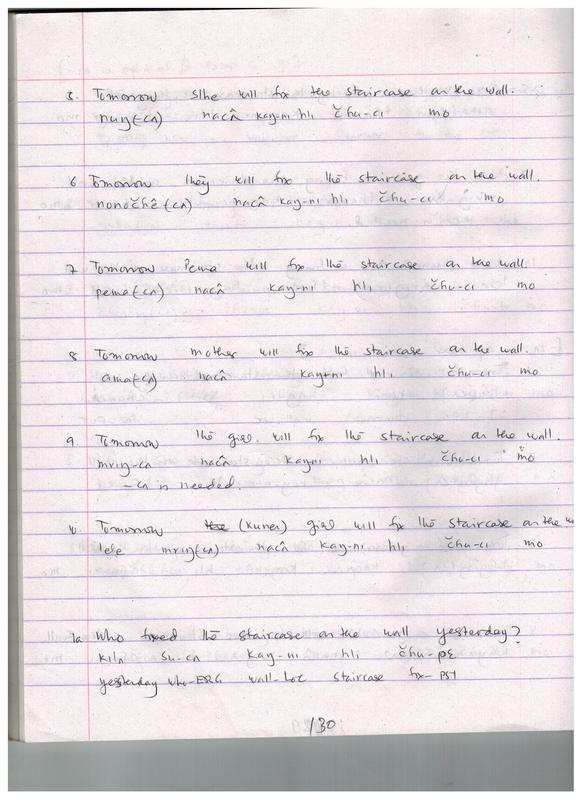 5. Tomorrow s/he will fix the staircase on the wall.
nuŋ(-cʌ) nacʌ̂ kaŋ-ni hli čhu-ci mo
6 Tomorrow they will fix the staircase on the wall.
nonočhê(cʌ) nacʌ̂ kaŋ-ni hli čhu-ci mo
7 Tomorrow Pema will fix the staircase on the wall.
pema(-cʌ) nacʌ̂ kaŋ-ni hli čhu-ci mo
8 Tomorrow mother will fix the staircase on the wall.
ama(-cʌ) nacʌ̂ kaŋ-ni hli čhu-ci mo
9. Tomorrow the girl will fix the staircase on the wall.
mriŋ-cʌ nacʌ̂ kaŋ-ni hli čhu-ci mo
-cʌ is needed.
10. Tomorrow (kuner) girl will fix the staircase on the
lele mriŋ(-cʌ) nacʌ̂ kaŋ-ni hli čhu-ci mo
1a Who fixed the staircase on the wall yesterday?
kilʌ su-cʌ kaŋ-ni hli čhu-pɛ
yesterday who-ERG wall-loc staircase fix-PST
/30